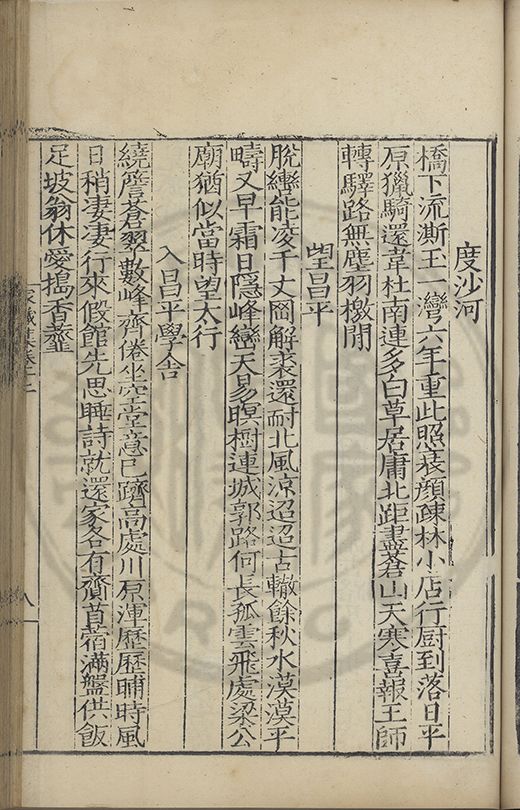 度沙河
橋下流澌玉一灣六年重此照衰顏疎林小店行厨到落日平
原獵騎還韋杜南連多白草居庸北距盡蒼山天寒喜報王師
轉驛路無塵羽檄閒
望昌平
脫轡能凌千丈岡解裘還耐北風涼迢迢古轍餘秋水漠漠平
疇又早霜日隱峰巒天易暝樹連城郭路何長孤雲飛處梁公
廟猶似當時望太行
入昌平學舍
繞簷蒼翠數峰齊倦坐空堂意已躋高處川原渾歷歷晡時風
日稍凄凄行來假館先思睡詩就還家各有賫苜蓿滿盤供飯
足坡翁休愛搗香虀